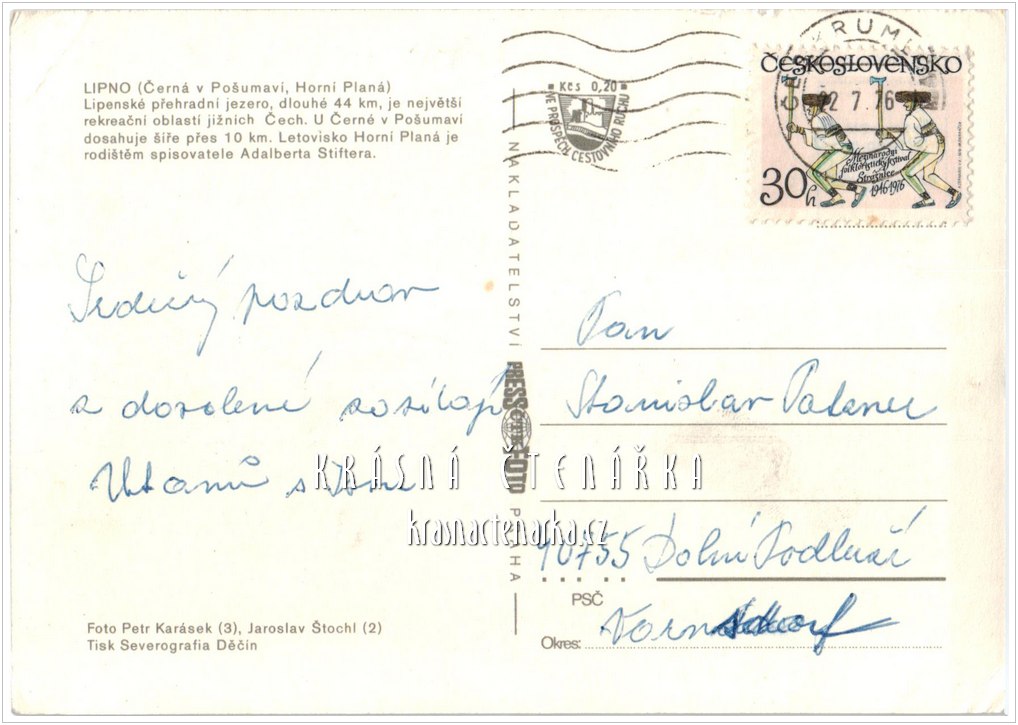 LIPNO (Černá v Pošumaví, Horní Planá)
Lipenské přehradní jezero, dlouhé 44 km, je největší
rekreační oblastí jižních Čech. U Černé v Pošumaví
dosahuje šíře přes 10 km. Letovisko Horní Planá je
rodištěm spisovatele Adalberta Stiftera.
Srdečný pozdrav
z dovolené zasílají
Foto Petr Karásek (3), Jaroslav Štochl (2)
Tisk Severografia Děčín
NAKLADATELSTVÍ
PRESSFOTO
PRAHA
Kčs 0,20
VE PROSPĚCH CESTOVNÍHO RUCHU
KRUM
22 7.76
ČESKOSLOVENSKO
Mezinárodní
folkloristický festival
Strážnice
1946-1976
30h
Pan
Stanislav
40755 Dolní Podluží
PSČ
Okres:
KRÁSNÁ ČTENÁŘKA
krasnactenarka.cz